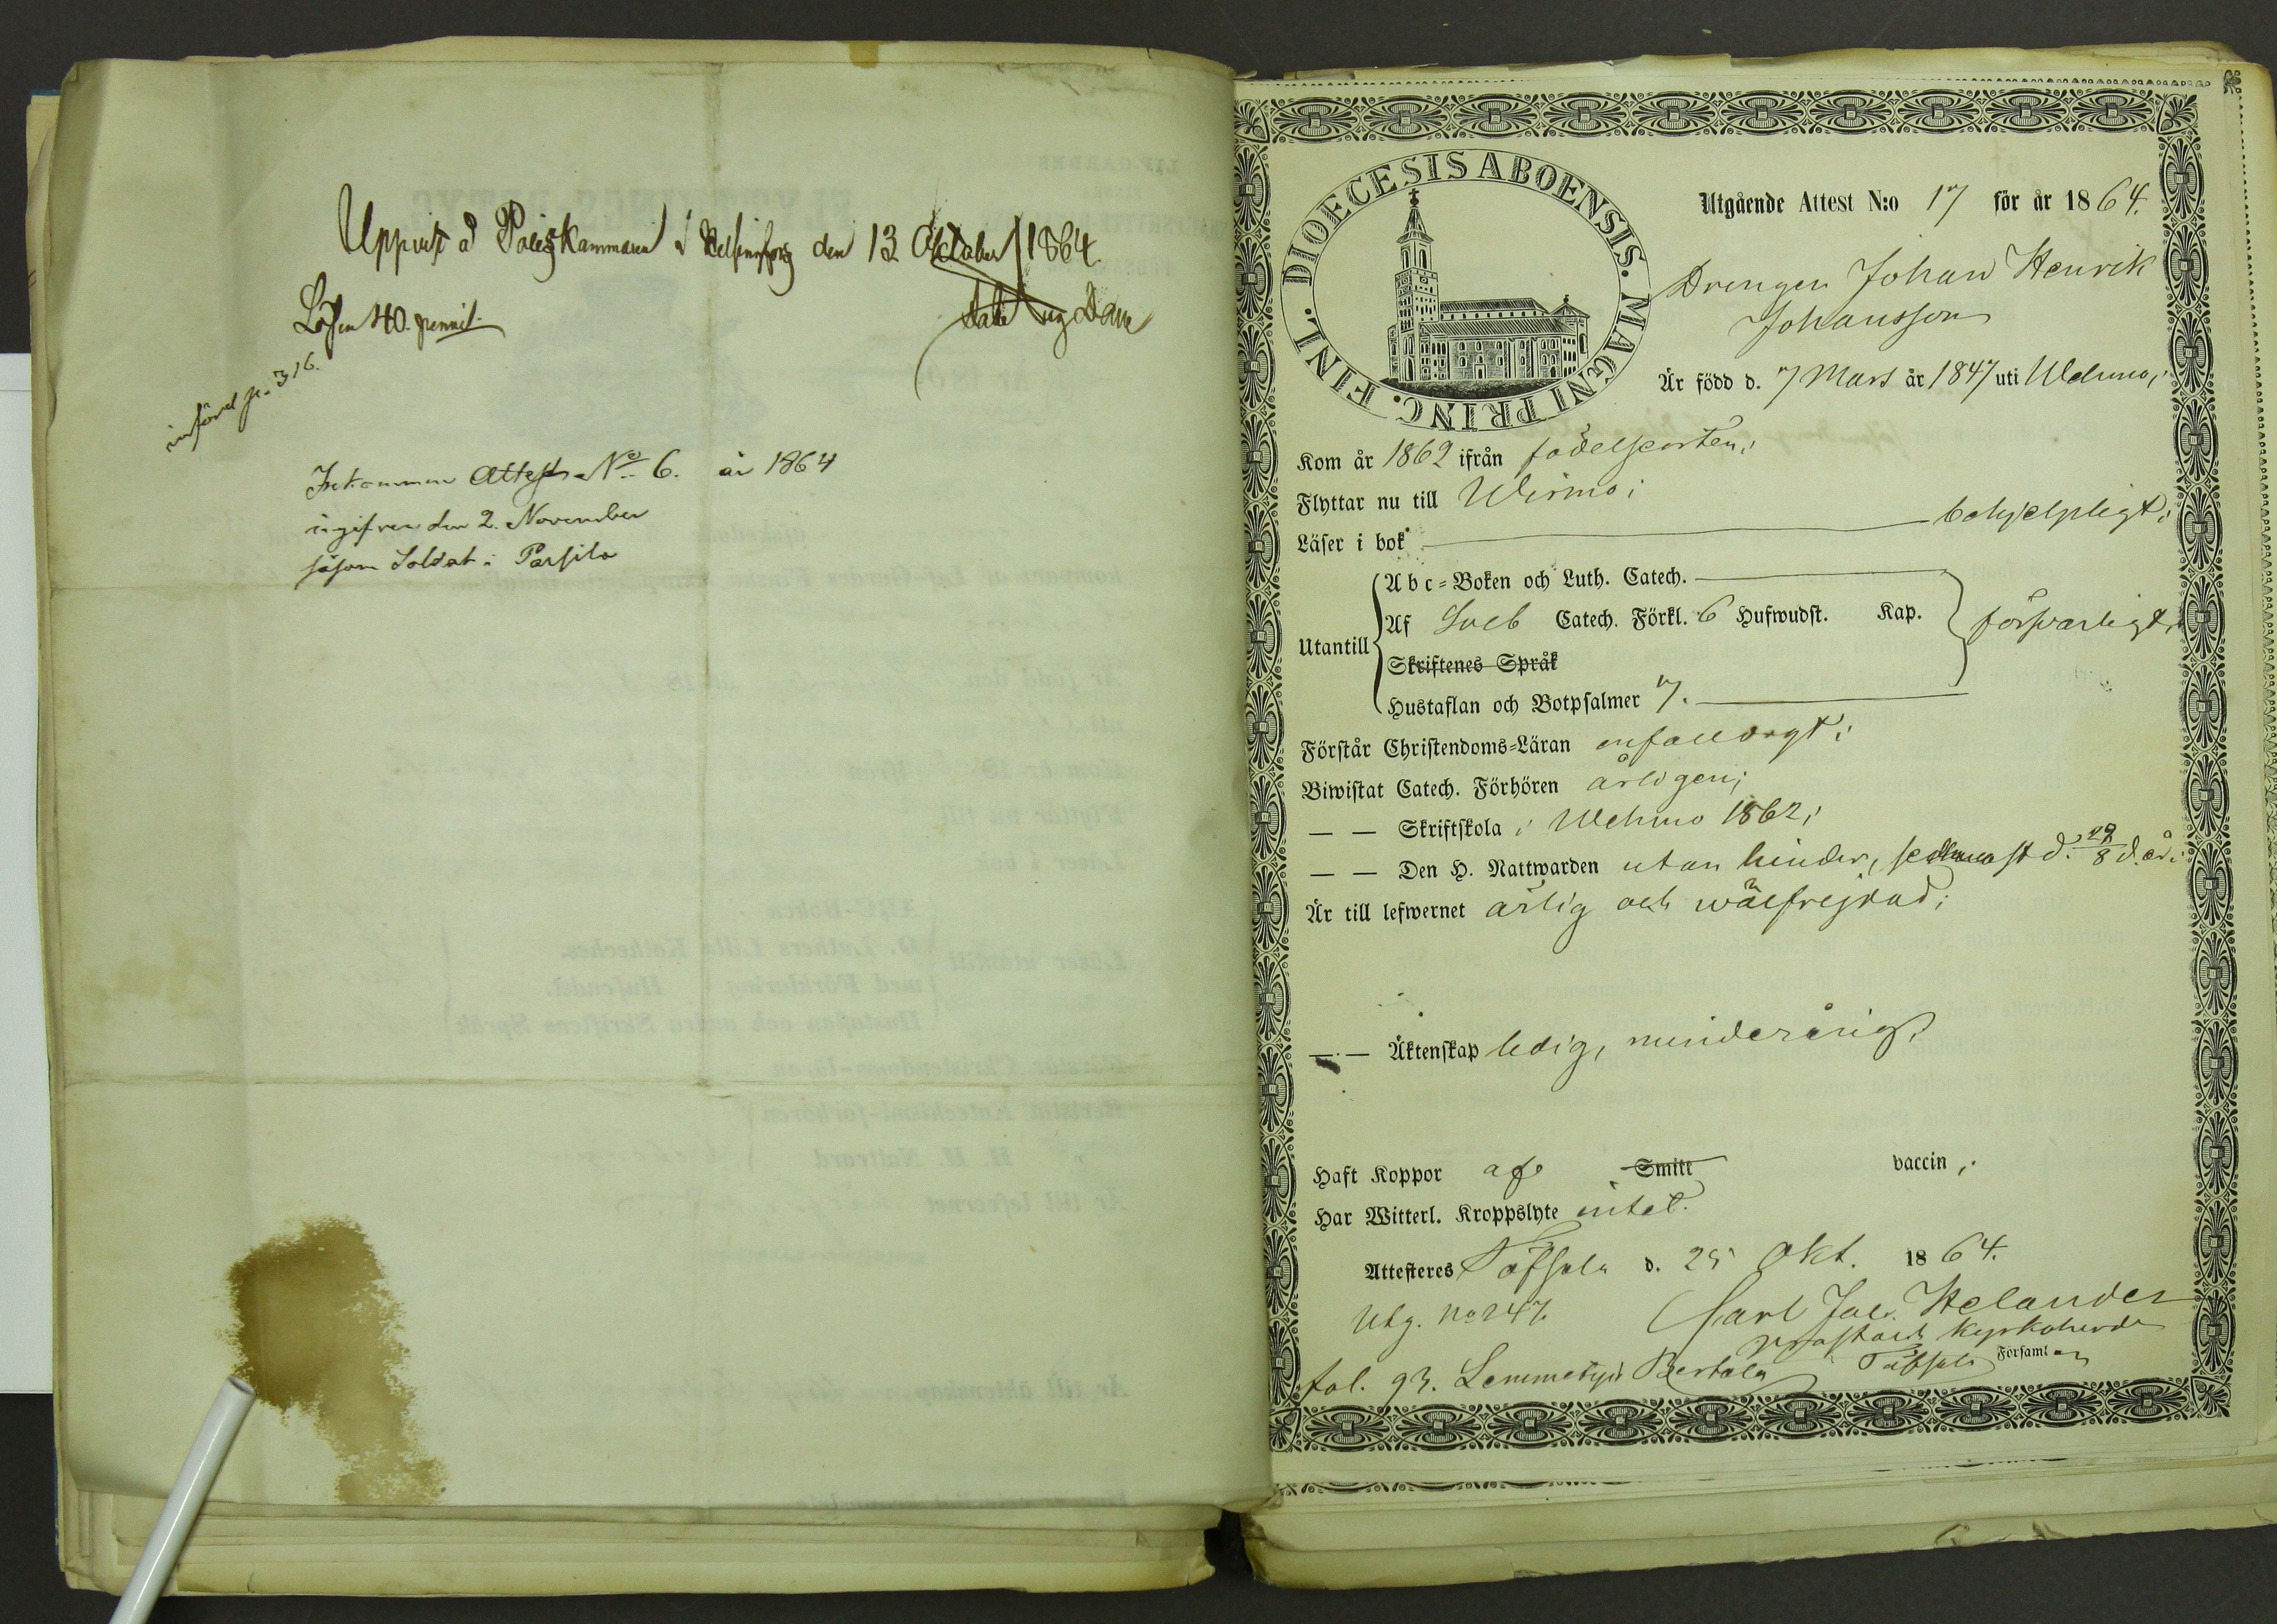 Uppvist å Poliskammaren i Helsingfors den 13 Oktober 1864.
Lösen 40. penni
införd p. 316.
Inkommen Attest No 6. år 1864
ingifven den 2. November
såsom Soldat i Parsila
DIOECESIS ABOENSIS. MAGNI PRINC. FINL.
Utgående Attest N:o 17 för år 1864.
Drengen Johan Henrik
Johansson
Är född d. 7 Mars år 1847 uti Wehmo,
Kom år 1862 ifrån födelseorten;
Flyttar nu till Wirmo;
Läser i bok behjelpligt;
Utantill
Abc-Boken och Luth. Catech.
Af Sveb Catech. Förkl. 6 Hufwudst. Kap. försvarligt;
Skriftenes Språk
Hustaflan och Botpsalmer 7.
Förstår Christendoms-Läran enfaldigt;
Biwistat Catech. Förhören årligen;
— — Skriftskola i Wehmo 1862;
— — Den H. Nattwarden utan hinder, sednast d. 29/8 d. år;
Är till lefwernet ärlig och wälfrejdad;
— — Äktenskap ledig, minderårig.
Haft Koppor af Smitt vaccin;
Har Witterl. Kroppslyte intet.
Attesteras Töfsala d. 25 Okt. 1864.
Utg. No 247. Carl Jac. Helander
Prost och Kyrkoherde
fol. 93. Lemmetyis Bertala i Töfsala Församl